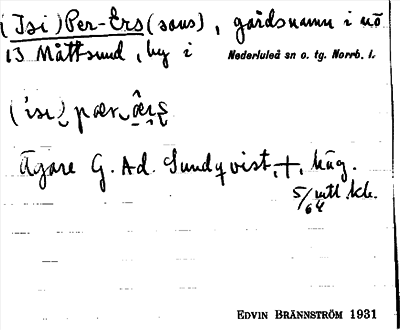 (Isi) Per-Ers (sons), gårdsnamn i nō
13 Måttsund, by i Nederluleå sn o. tg. Norrb. l.
Ägare G. Ad. Sundqvist, +, häg.
5/64 mtl kr.
EDVIN BRÄNNSTRÖM 1931